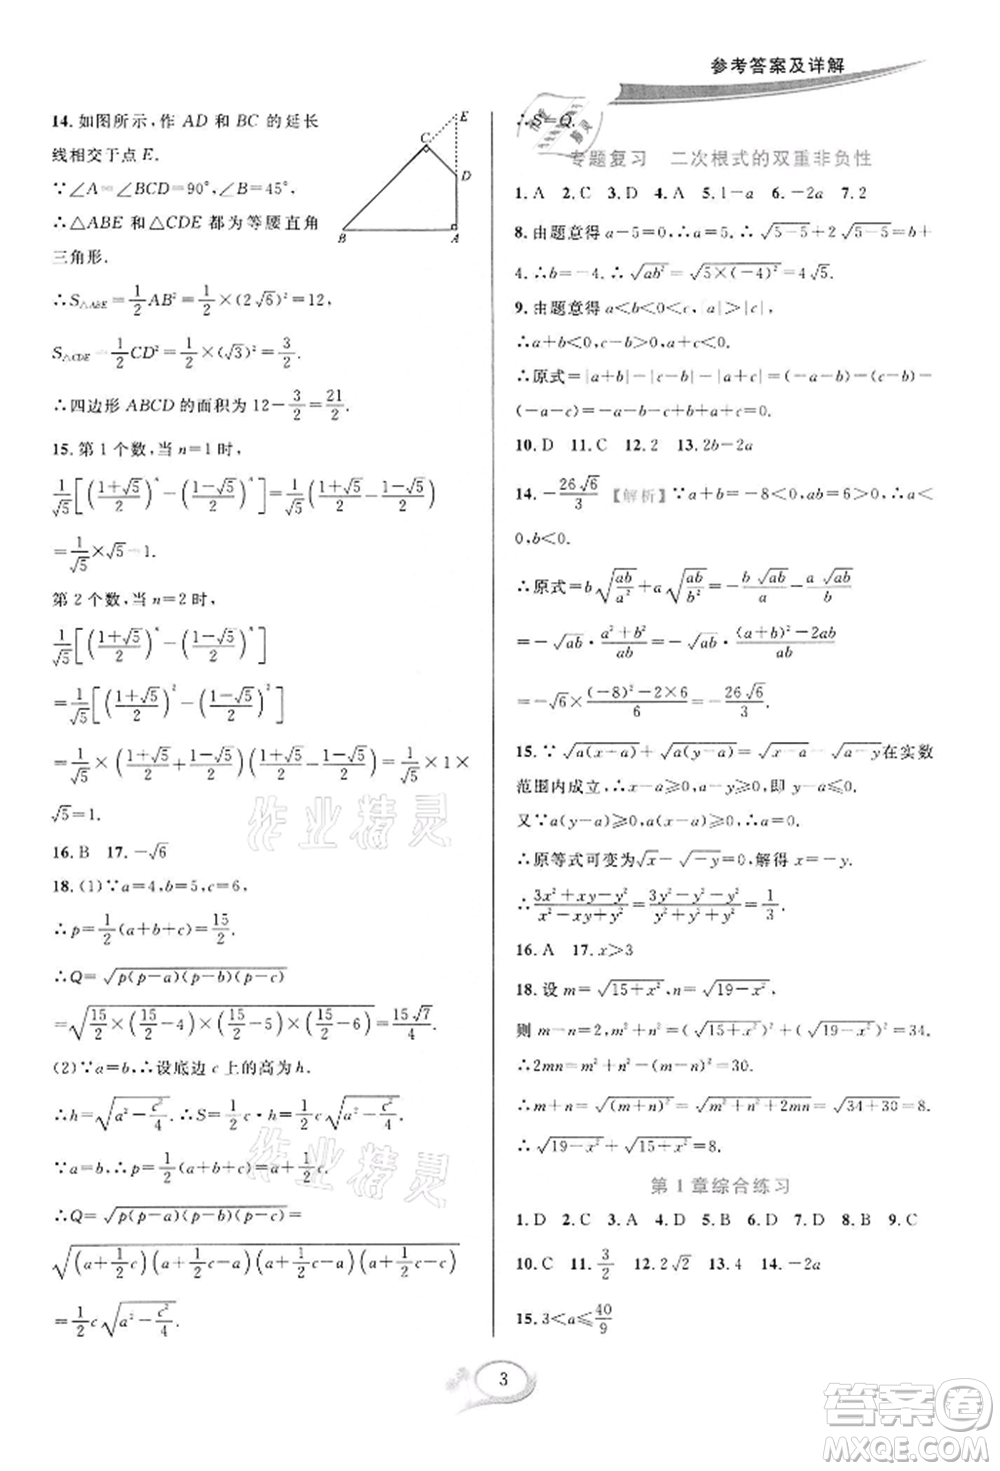 参考答案及详解
14. 如图所示,作 AD 和 BC 的延长
线相交于点 E.
∵∠A=∠BCD=90°,
∴△ABE 和△CDE 都为等腰直角
三角形.
∴S△ABE=1/2AB²=1/2×(2√6)²=12,
S△CDE=1/2CD²=1/2×(√3)²=3/2.
∴四边形 ABCD 的面积为 12-3/2=21/2.
E
C
D
B
A
15. 第 1 个数,当 n=1 时,
1/√5[((1+√5)/2)ⁿ-((1-√5)/2)ⁿ]=1/√5((1+√5)/2-(1-√5)/2)
=1/√5×√5=1.
第 2 个数,当 n=2 时,
1/√5[((1+√5)/2)ⁿ-((1-√5)/2)ⁿ]
=1/√5[((1+√5)/2)²-((1-√5)/2)²]
=1/√5×((1+√5)/2+(1-√5)/2)((1+√5)/2-(1-√5)/2)=1/√5×1×
√5=1.
16. B 17. -√6
18. (1)∵a=4,b=5,c=6,
∴p=1/2(a+b+c)=15/2.
∴Q=√(p(p-a)(p-b)(p-c))
=√(15/2×(15/2-4)×(15/2-5)×(15/2-6))=15√7/4.
(2)∵a=b,∴设底边 c 上的高为 h.
∴h=√(a²-c²/4).∴S=1/2c·h=1/2c√(a²-c²/4).
∵a=b,∴p=1/2(a+b+c)=a+1/2c.
∴Q=√(p(p-a)(p-b)(p-c))=
√((a+1/2c)(a+1/2c-a)(a+1/2c-a)(a+1/2c-c))
=1/2c√(a²-c²/4).
∴S=Q.
专题复习 二次根式的双重非负性
1. A 2. C 3. D 4. A 5. 1-a 6. -2a 7. 2
8. 由题意得 a-5=0,∴a=5.∴√(5-5)+2√(5-5)=b+
4.∴b=-4.∴√(ab²)=√(5×(-4)²)=4√5.
9. 由题意得 a<b<0<c,|a|>|c|,
∴a+b<0,c-b>0,a+c<0.
∴原式=|a+b|-|c-b|+|a+c|=(-a-b)-
(c-b)+(-a-c)=-a-b-c+b-a-c=-2a-2c.
10. D 11. C 12. 2 13. 2b-2a
14. -26√6/3 【解析】∵a+b=-8<0,ab=6>0,∴a<
0,b<0.
∴原式=b√(ab/a²)+a√(ab/b²)=-b√ab/a-a√ab/b
=-√ab·(a²+b²)/ab=-√ab·((a+b)²-2ab)/ab
=-√6×((-8)²-2×6)/6=-26√6/3.
15. ∵√(a(x-a))+√(a(y-a))=√(x-a)-√(a-y)在实数
范围内成立,∴x-a≥0,a-y≥0,即x≥a≥y.
又∵a(y-a)≥0,a(x-a)≥0,∴a=0.
∴原等式可变为√x-√(-y)=0,解得 x=-y.
∴(3x²+xy-y²)/(x²-xy+y²)=(3y²-y²-y²)/(y²+y²+y²)=1/3.
16. A 17. x>3
18. 设 m=√(15+x²),n=√(19-x²),
则 m-n=2,m²+n²=(√(15+x²))²+(√(19-x²))²=34.
∴2mn=m²+n²-(m-n)²=30.
∴m+n=√((m+n)²)=√(m²+n²+2mn)=√(34+30)=8.
∴√(19-x²)+√(15+x²)=8.
第 1 章综合练习
1. D 2. C 3. A 4. D 5. B 6. D 7. D 8. B 9. C
10. C 11. 3/2 12. 2√2 13. 4 14. -2a
15. 3<a≤40/9
3
作业精灵
作业精灵
答案圈
MXQE.COM